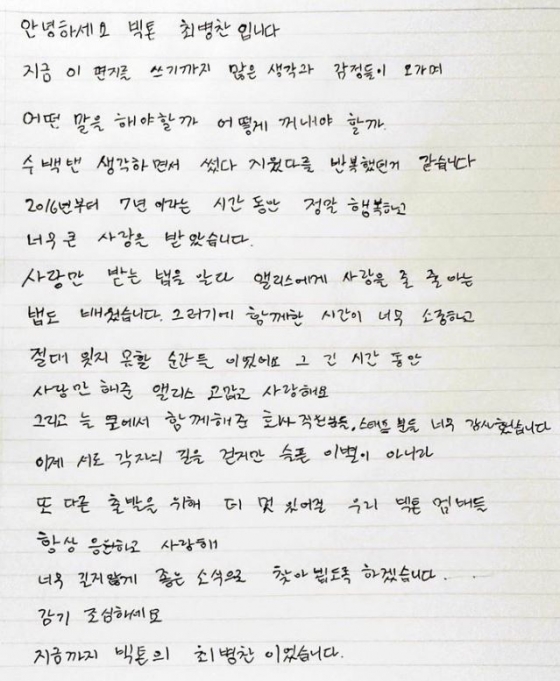 안녕하세요 빅톤 최병찬입니다
지금 이 편지를 쓰기까지 많은 생각과 감정들이 오가며
어떤 말을 해야할까 어떻게 꺼내야 할까.
수백번 생각하면서 썼다 지웠다를 반복했던거 같습니다
2016년부터 7년 이라는 시간 동안 정말 행복하고
너무 큰 사랑을 받았습니다.
사랑만 받는 법을 알다 앨리스에게 사랑을 줄 줄 아는
법도 배웠습니다. 그러기에 함께한 시간이 너무 소중하고
절대 잊지 못할 순간들 이었어요 그 긴 시간 동안
사랑만 해준 앨리스 고맙고 사랑해요
그리고 늘 옆에서 함께해준 회사 직원분들, 스태프 분들 너무 감사했습니다
이제 서로 각자의 길을 걷지만 슬픈 이별이 아니라
또 다른 출발을 위해 더 멋있어질 우리 빅톤 멤버들
항상 응원하고 사랑해
너무 길지않게 좋은 소식으로 찾아뵙도록 하겠습니다.
감기 조심하세요
지금까지 빅톤의 최병찬 이었습니다.